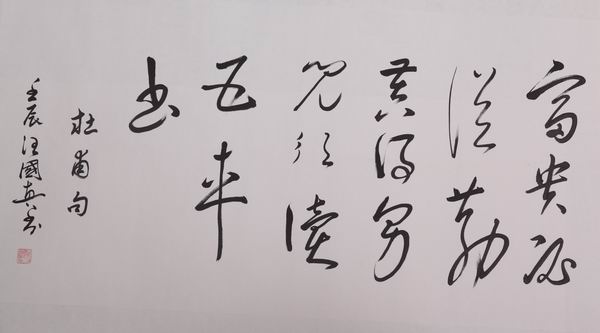 富贵必
從勤
苦得男
兒須讀
五車
書
杜甫句
壬辰汪國真書